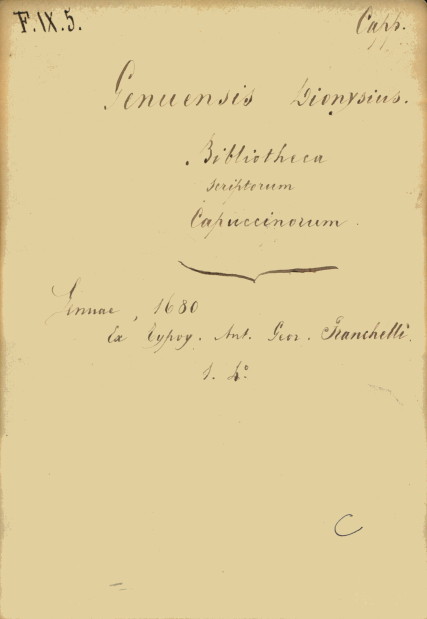 F.IX.5.
Capp.
Genuensis Dionysius.
Bibliotheca
scriptorum
Capuccinorum
Genuae, 1680
Ex Typog. Ant. Geor. Franchelli.
1. 4º
C